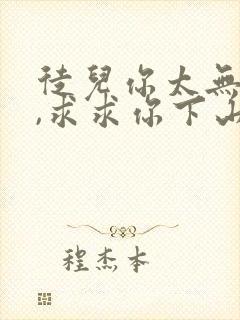 徒兒你太無
,求求你下山
程杰本